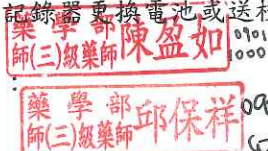 記錄器更換電池或送校
藥學部
師(三)級藥師 陳盈如 0901
1000
藥學部
師(三)級藥師 邱保祥 09